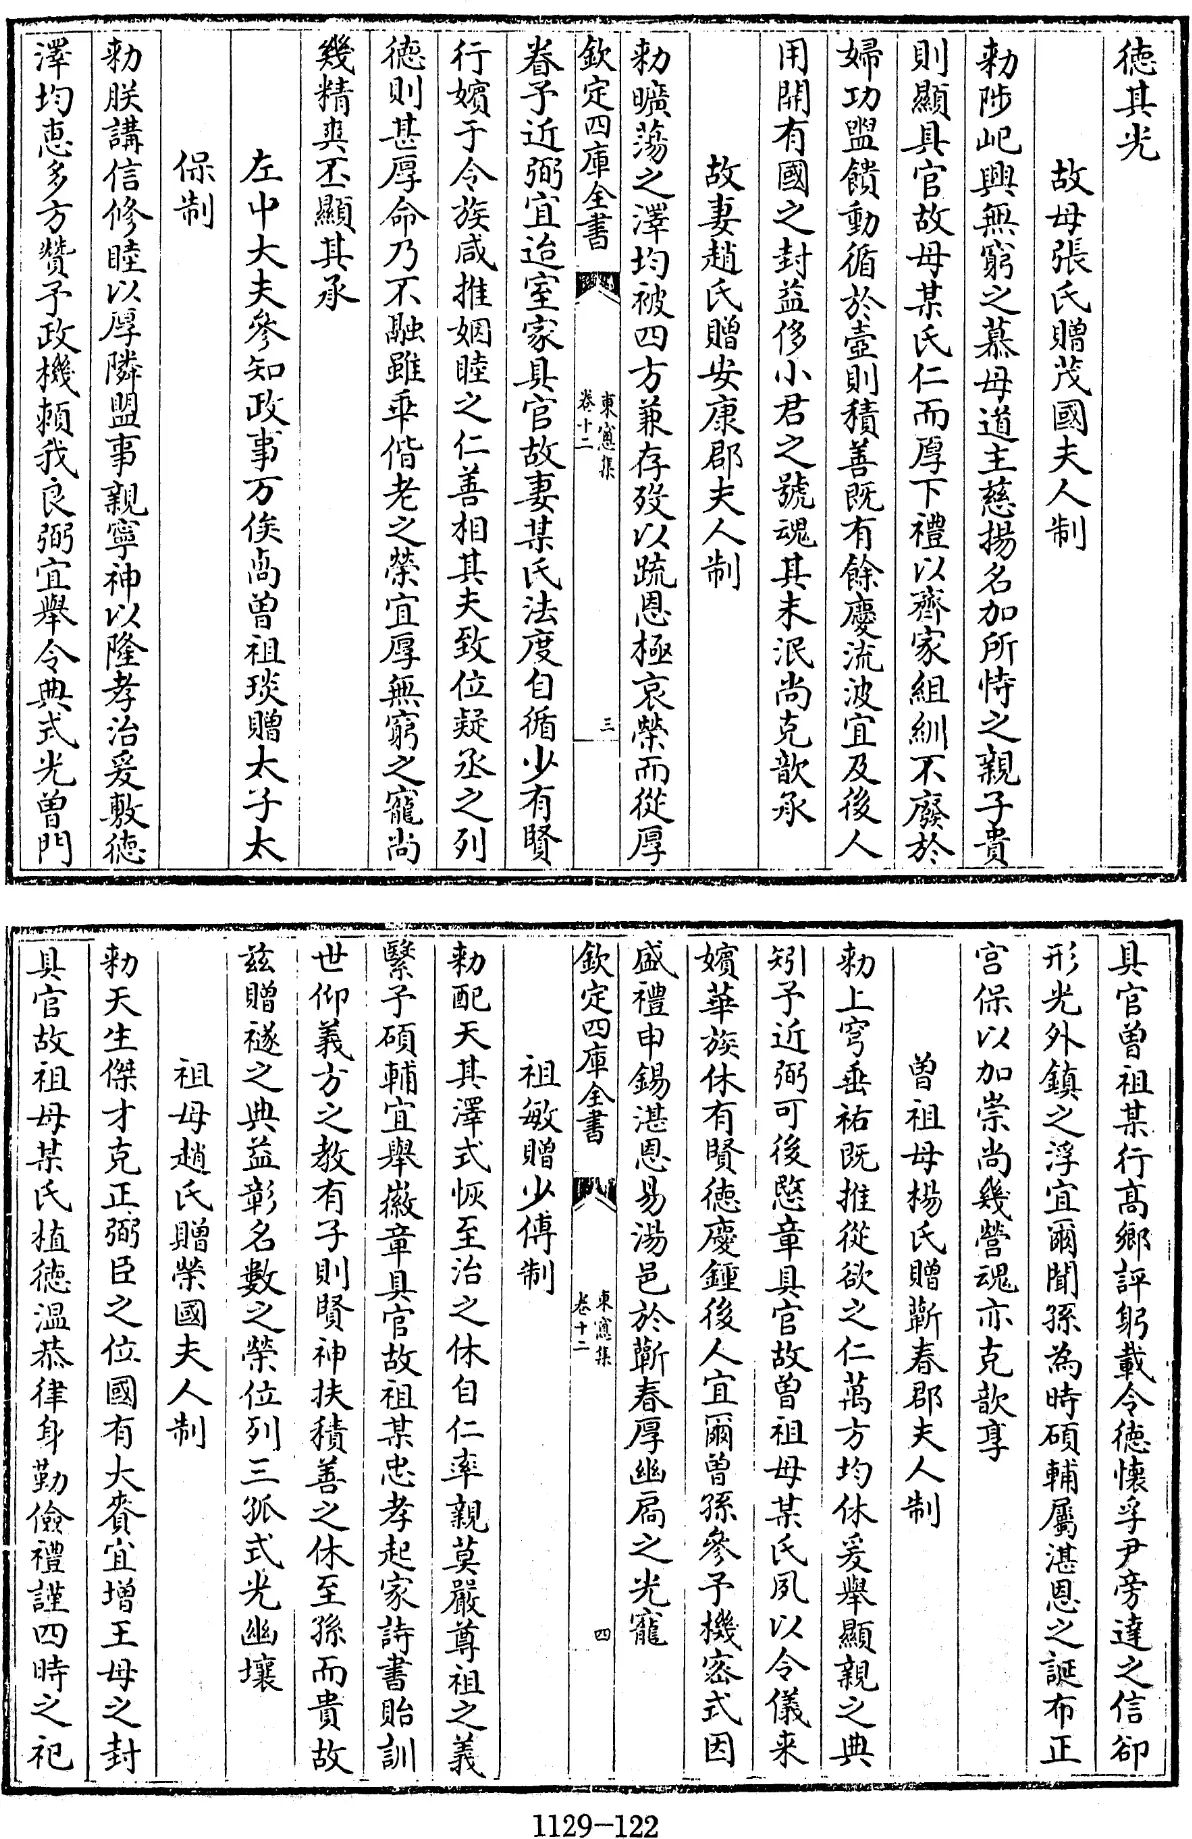 德其光
故母張氏贈茂國夫人制
勅陟屺興無窮之慕母道主慈揚名加所恃之親子貴
則顯具官故母某氏仁而厚下禮以齊家組紃不廢於
婦功盥饋動循於壼則積善既有餘慶流波宜及後人
用開有國之封益侈小君之號魂其未泯尚克歆承
故妻趙氏贈安康郡夫人制
勅曠蕩之澤均被四方兼存歿以疏恩極哀榮而從厚
欽定四庫全書
東窻集
卷十二
三
眷予近弼宜迨室家具官故妻某氏法度自循少有賢
行嬪于令族咸推婣睦之仁善相其夫致位疑丞之列
德則甚厚命乃不融雖乖偕老之榮宜厚無窮之寵尚
幾精爽丕顯其承
左中大夫參知政事万俟卨曽祖琰贈太子太
保制
勅朕講信修睦以厚隣盟事親寧神以隆孝治爰敷德
澤均惠多方贊予政機頼我良弼宜舉令典式光曽門
具官曽祖某行高鄉評躬載令德懷孚尹旁達之信卻
形光外鎮之浮宜爾聞孫為時碩輔屬湛恩之誕布正
宫保以加崇尚幾營魂亦克歆享
曽祖母楊氏贈蘄春郡夫人制
勅上穹垂祐既推從欲之仁萬方均休爰舉顯親之典
矧予近弼可後愍章具官故曽祖母某氏夙以令儀来
嬪華族休有賢德慶鍾後人宜爾曽孫參予機宻式因
盛禮申錫湛恩易湯邑於蘄春厚幽扃之光寵
欽定四庫全書
東窻集
卷十二
四
祖敏贈少傅制
勅配天其澤式恢至治之休自仁率親莫嚴尊祖之義
繄予碩輔宜舉徽章具官故祖某忠孝起家詩書貽訓
世仰義方之教有子則賢神扶積善之休至孫而貴故
兹贈襚之典益彰名數之榮位列三孤式光幽壤
祖母趙氏贈榮國夫人制
勅天生傑才克正弼臣之位國有大賚宜增王母之封
具官故祖母某氏植德温恭律身勤儉禮謹四時之祀
1129-122